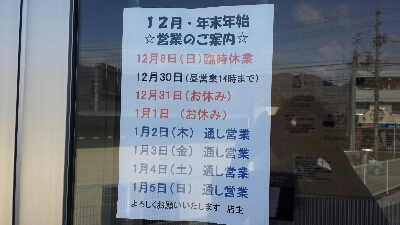 12月・年末年始
☆営業のご案内☆
12月8日(日)臨時休業
12月30日(昼営業14時まで)
12月31日(お休み)
1月1日 (お休み)
1月2日(木) 通し営業
1月3日(金) 通し営業
1月4日(土) 通し営業
1月5日(日) 通し営業
よろしくお願いいたします 店主